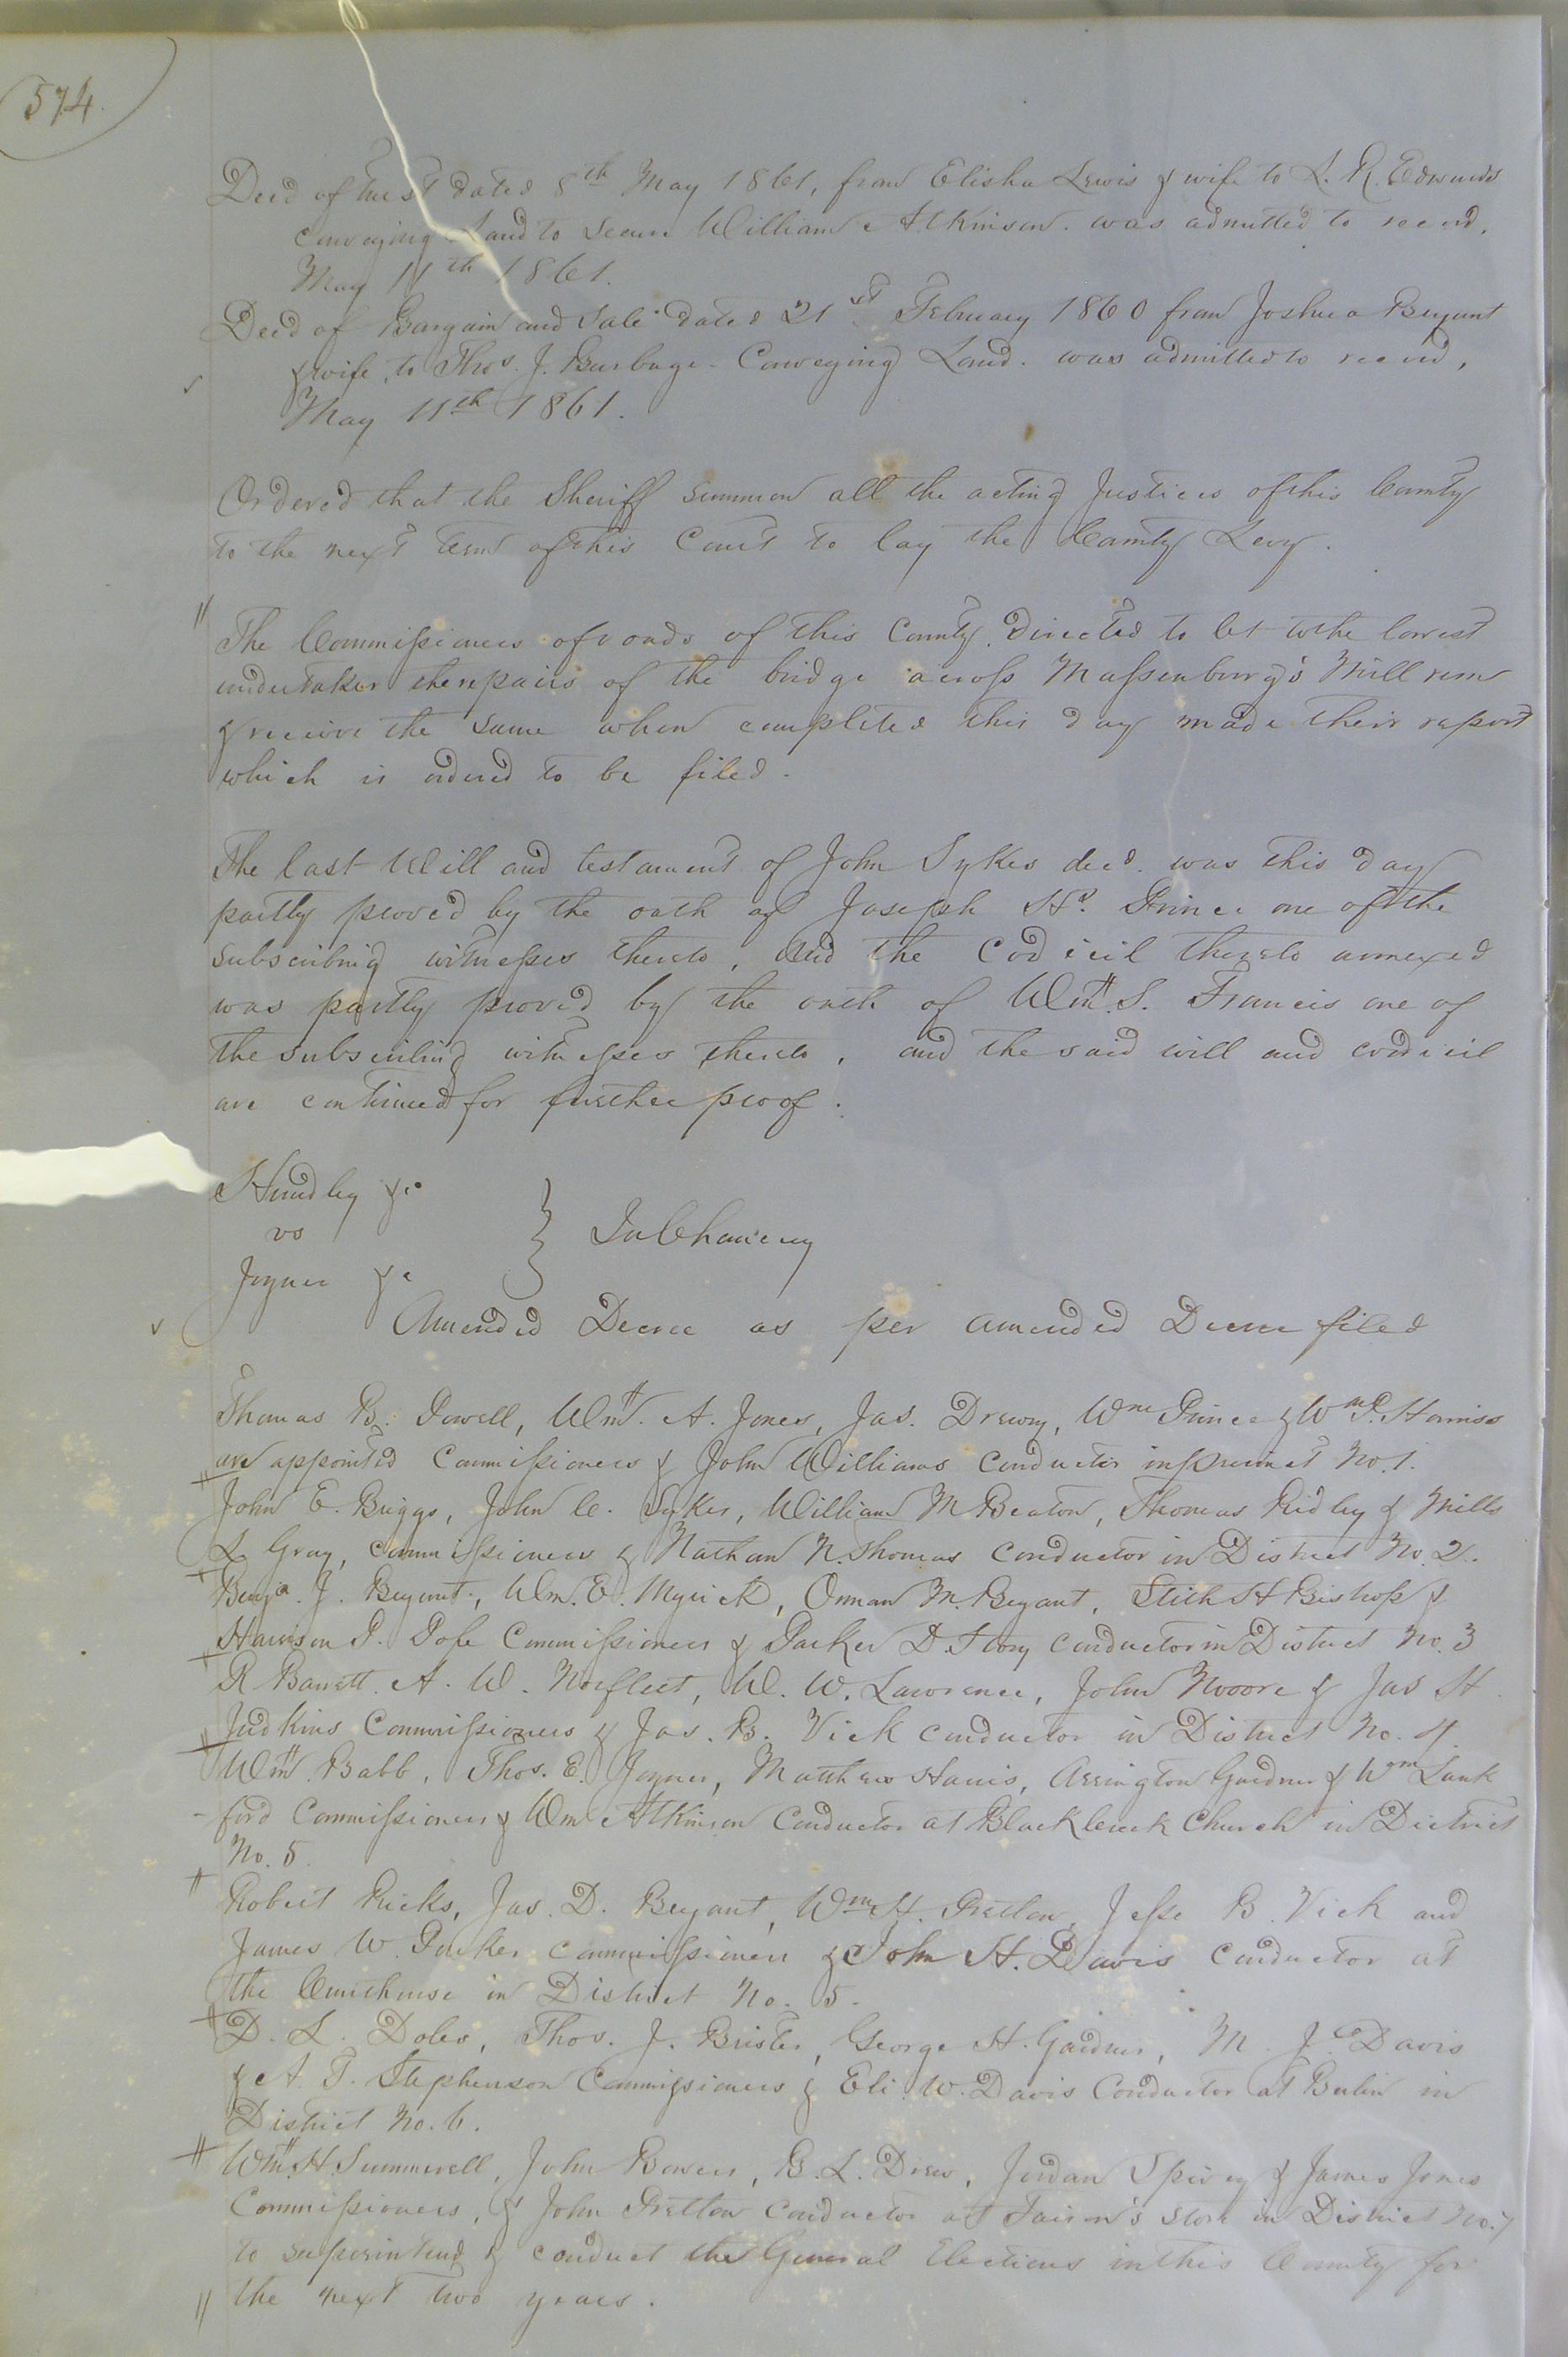 574.
Deed of trust dated 8th May 1861, from Elisha Lewis & wife to L. R. Edwards
conveying Land to secure William Atkinson. was admitted to record,
May 11th 1861.
Deed of Bargain and Sale dated 21st February 1860 from Joshua Bryant
& wife, to Thos. J. Burbage Conveying Land. was admitted to record,
May 11th 1861.
Ordered that the Sheriff summon all the acting Justices of this County
to the next term of this Court to lay the County Levy.
The Commissioners of roads of this County, Directed to let to the lowest
undertaker the repairs of the bridge across Massenburg's Mill run
& receive the same when completed this day made their report
which is ordered to be filed.
The last Will and testament of John Sykes decd. was this day
partly proved by the oath of Joseph Prince one of the
subscribing witnesses thereto, and the Codicil thereto annexed
was partly proved by the oath of Wm. S. Francis one of
the subscribing witnesses thereto, and the said will and codicil
are continued for further proof.
Hundley &c
vs } In Chancery
Joyner &c
Amended Decree as per amended Decree filed
Thomas B. Powell, Wm. A. Jones, Jas. Drewry, Wm Prince & Wm Harriss
are appointed Commissioners & John Williams conductor in precinct No. 1.
John E. Briggs, John C. Sykes, William M Beaton, Thomas Ridley & Mills
L Gray, commissioners & Nathan N. Thomas conductor in District No. 2.
Benja. J. Bryant, Wm. E. Myrick, Orman M. Bryant, Stith H Bishop &
Harrison P. Pope Commissioners & Parker D. Story conductor in District No. 3
R Barrett. A. W. Norfleet, W. W. Lawrence, John Moore & Jas H
Judkins Commissioners & Jas. B. Vick conductor in District No. 4.
Wm. Babb, Thos. E. Joyner, Matthew Harris, Arrington Gardner & Wm Lank
ford Commissioners & Wm Atkinson Conductor at Black Creek Church in District
No. 5.
Robert Ricks, Jas. D. Bryant, Wm H. Pretlow, Jesse B. Vick and
James W. Parker commissioners & John H. Davis conductor at
the Courthouse in District No. 5.
D. L. Doles, Thos. J. Brister, George H. Gardner, M. J. Davis
& A. T. Stephenson Commissioners & Eli. W. Davis Conductor at Berlin in
District No. 6.
Wm. H. Summerell, John Bowers, B. L. Drew, Jordan Spivey & James Jones
Commissioners, & John Pretlow conductor at Faison's Store in District No. 7
to superintend & conduct the General Elections in this County for
the next two years.